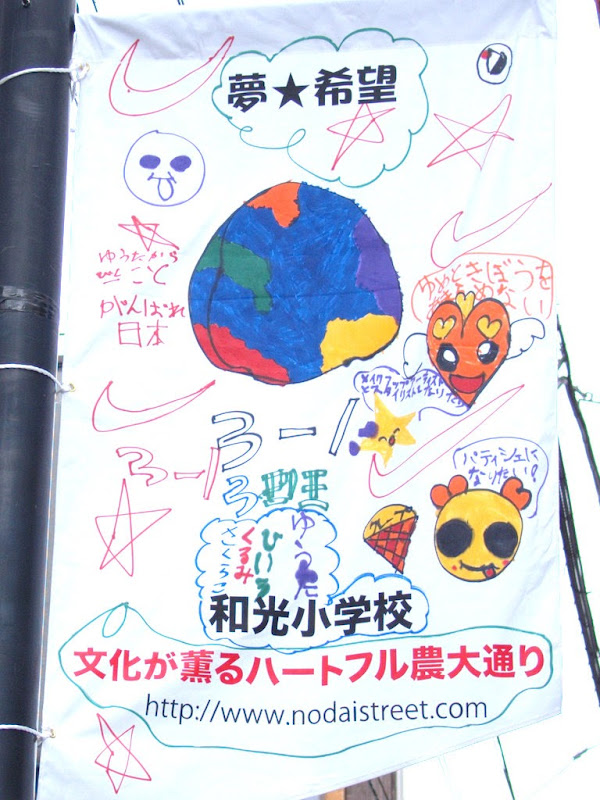 夢★希望
ゆめときぼうを
ゆうたから
ひとこと
がんばれ
日本
パティシエに
なりたい!
3-1
3-1
クレープ
ゆうた
ひいろ
くるみ
さくらこ
和光小学校
文化が薫るハートフル農大通り
http://www.nodaistreet.com